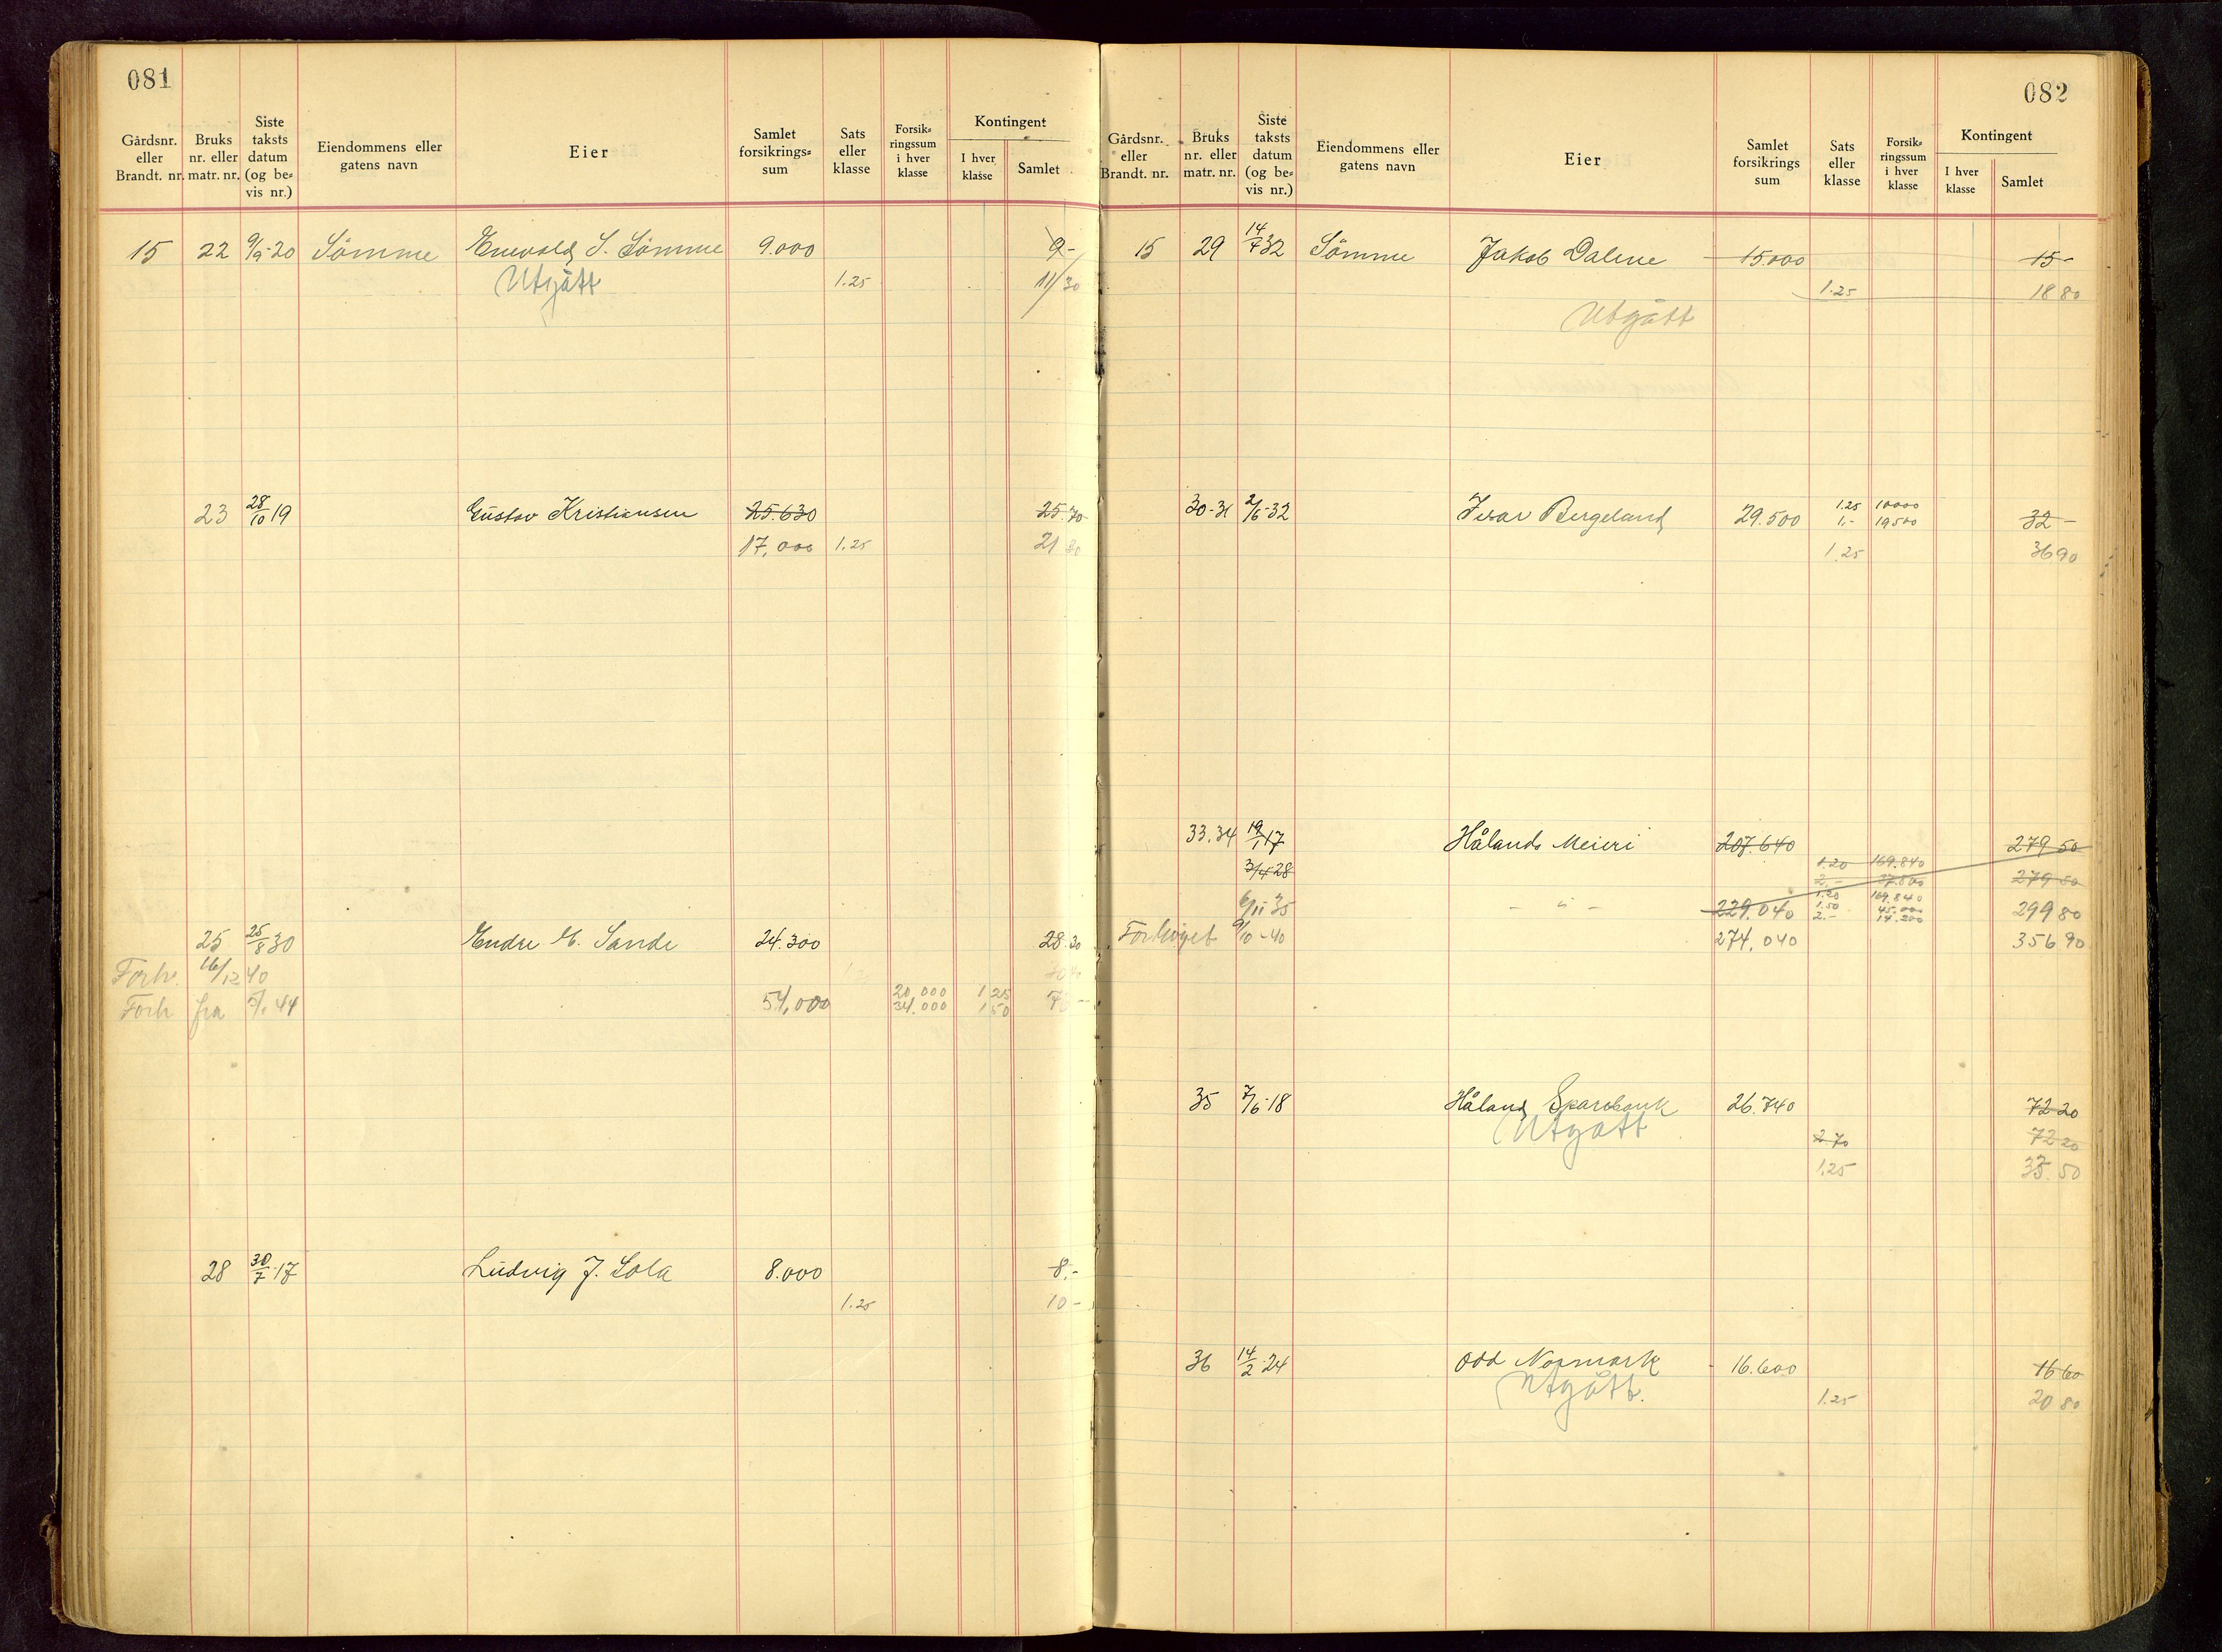 081
Gårdsnr. eller Brandt. nr. Bruks nr. eller matr. nr. Siste taksts datum (og be= vis nr.) Eiendommens eller gatens navn Eier Samlet forsikrings= sum Sats eller klasse Forsik= ringssum i hver klasse Kontingent I hver klasse Samlet
15 22 9/9-20 Sömme Enevald S. Sömme 9.000 9-
Utgått 1.25 11/30
23 28/10 19 Gustav Kristiansen 25.630 25.70
17,000 1.25 21 30
25 25/8 30 Endre E. Sande 24.300 28.30
Forh. 16/12 40
Forh fra 44 54,000 20.000 1 25
34.000 1 50
28 30/7-17 Ludvig J. Sola 8.000 8.-
1.25 10-
082
Gårdsnr. eller Brandt. nr. Bruks nr. eller matr. nr. Siste taksts datum (og be= vis nr.) Eiendommens eller gatens navn Eier Samlet forsikrings sum Sats eller klasse Forsik= ringssum i hver klasse Kontingent I hver klasse Samlet
15 29 14/7 32 Sömme Jakob Dalene 15000 15-
1.25 18 80
Utgått
30-31 2/6-32 Ivar Bergeland 29.500 1.25 10000
1.- 19500 32-
1.25 36 90
33.34 19/1 17 Hålands Meieri 207.640 279 50
3/4 28 1.20 169.840
2.- 37.800 279 50
6/11 35 - " - 229.040 1.20 169.840
1.50 45.000
2.- 14.200 299 80
Forhöyet 9/10-40 274,040 356 90
35 7/6-18 Håland Sparebank 26.740 72 20
Utgått 2 70 72 20
1.25 33.50
36 14/2-24 Odd Normark 16.600 16 60
Utgått. 1.25 20 80